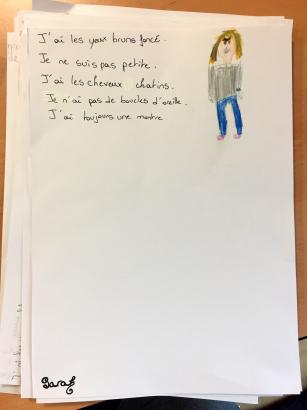 J'ai les yeux bruns foncé.
Je ne suis pas petite.
J'ai les cheveux chatins.
Je n'ai pas de boucles d'oreille.
J'ai toujours une montre